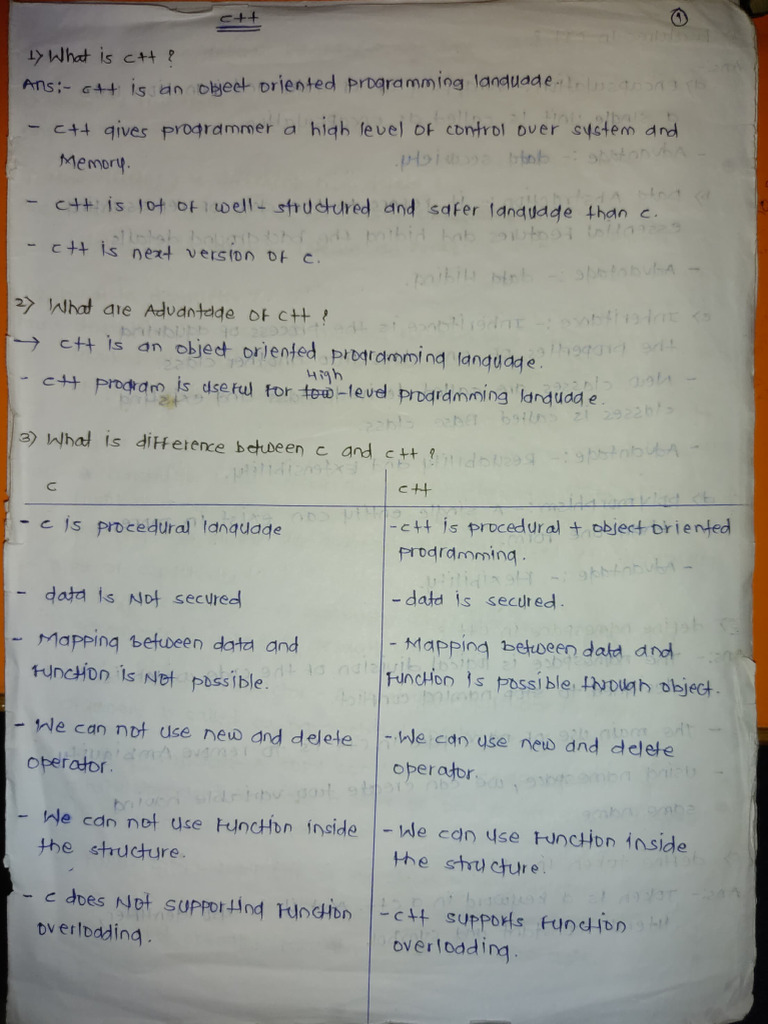 C++
1
1) What is C++ ?
Ans:- C++ is an object oriented programming language.
- C++ gives programmer a high level of control over system and
Memory.
- C++ is lot of well-structured and safer language than C.
- C++ is next version of C.
2) What are Advantage of C++ ?
→ C++ is an object oriented programming language.
High
- C++ program is useful for low-level programming language.
3) What is difference between C and C++ ?
C
C++
- C is procedural language
- C++ is procedural + object oriented
programming.
- data is Not secured
- data is secured.
- Mapping between data and
function is Not possible.
- Mapping between data and
function is possible through object.
- We can not use new and delete
operator.
- We can use new and delete
operator.
- We can not use function inside
the structure.
- We can use function inside
the structure.
- C does Not supporting function
overloading.
- C++ supports function
overloading.